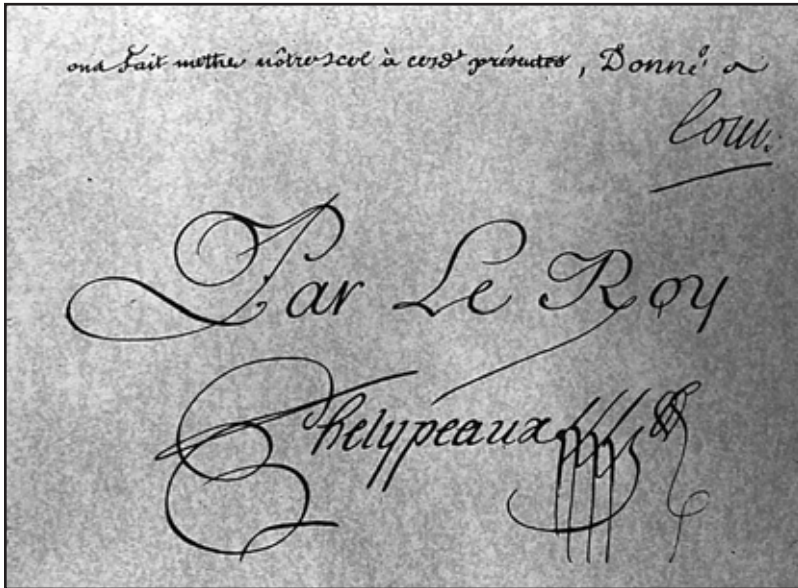 ond fait mettre nôtre scel à cesd. présentes, Donné a
Louis
Par Le Roy
Phelypeaux